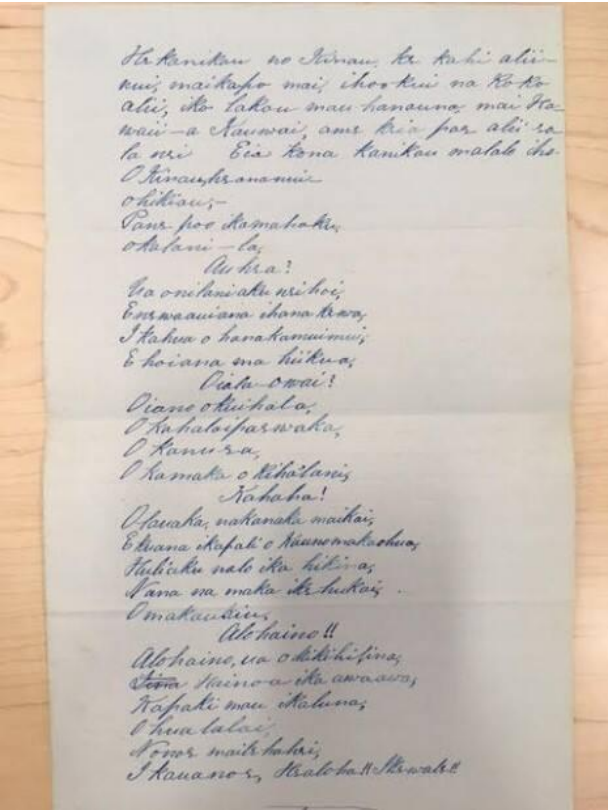 He kanikau no Kinau, ke kahi alii-
nui, maikapo mai, ihookui na koko
alii, iko lakou mau hanauna, mai Ha-
waii-a Kauwai, ame keia pae alii ea
la nei Eia kona kanikau malalo iho
O Kinau, he ananui
ohikiau,-
Pane poo ikamahoku,
okalani-la,
Auhea?
Ua onilani aku nei hoi,
Enewaauiana ihana kewa,
I kahua o hanakamuimui,
E hoiana ma hiikua,
Oiala-owai?
Oiano okuihala,
O kahalaipaewaka,
O kanuea,
O kamaka o Kihalani,
Kahaha!
Olauaka, nakanaka maikai,
Ekuana ikapali o Kaunomakaohua,
Huliaku nalo ika hikina,
Nana na maka ike hukai,
Omakaukiu,
Alohaino!!
Alohaino, ua o Kikihifina,
Hainoa ika awaawa,
Kapaki mau ikaluna,
O hualalai,
Nonoe maile hahei,
I kauanoe, Healoha!! Ikewale!!